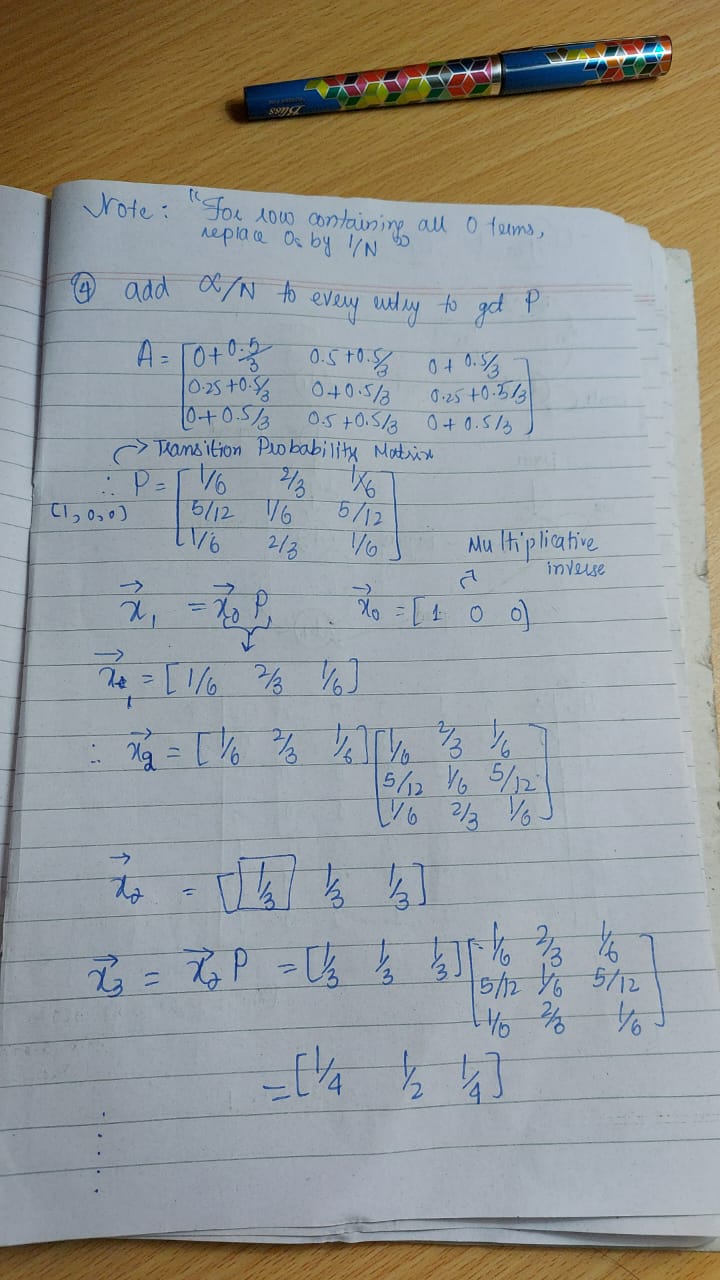 Bliss
Note: "For row containing all 0 terms,
replace 0s by 1/N"
④ add α/N to every entry to get P
A = [0+0.5/3 0.5+0.5/3 0+0.5/3
0.25+0.5/3 0+0.5/3 0.25+0.5/3
0+0.5/3 0.5+0.5/3 0+0.5/3]
→ Transition Probability Matrix
∴ P = [1/6 2/3 1/6
[1,0,0) 5/12 1/6 5/12
1/6 2/3 1/6]
Multiplicative
inverse
x⃗₁ = x⃗₀ P, x⃗₀ = [1 0 0]
x⃗₁ = [1/6 2/3 1/6]
∴ x⃗₂ = [1/6 2/3 1/6] [1/6 2/3 1/6
5/12 1/6 5/12
1/6 2/3 1/6]
x⃗₂ = [1/3 1/3 1/3]
x⃗₃ = x⃗₂ P = [1/3 1/3 1/3] [1/6 2/3 1/6
5/12 1/6 5/12
1/6 2/3 1/6]
= [1/4 1/2 1/4]